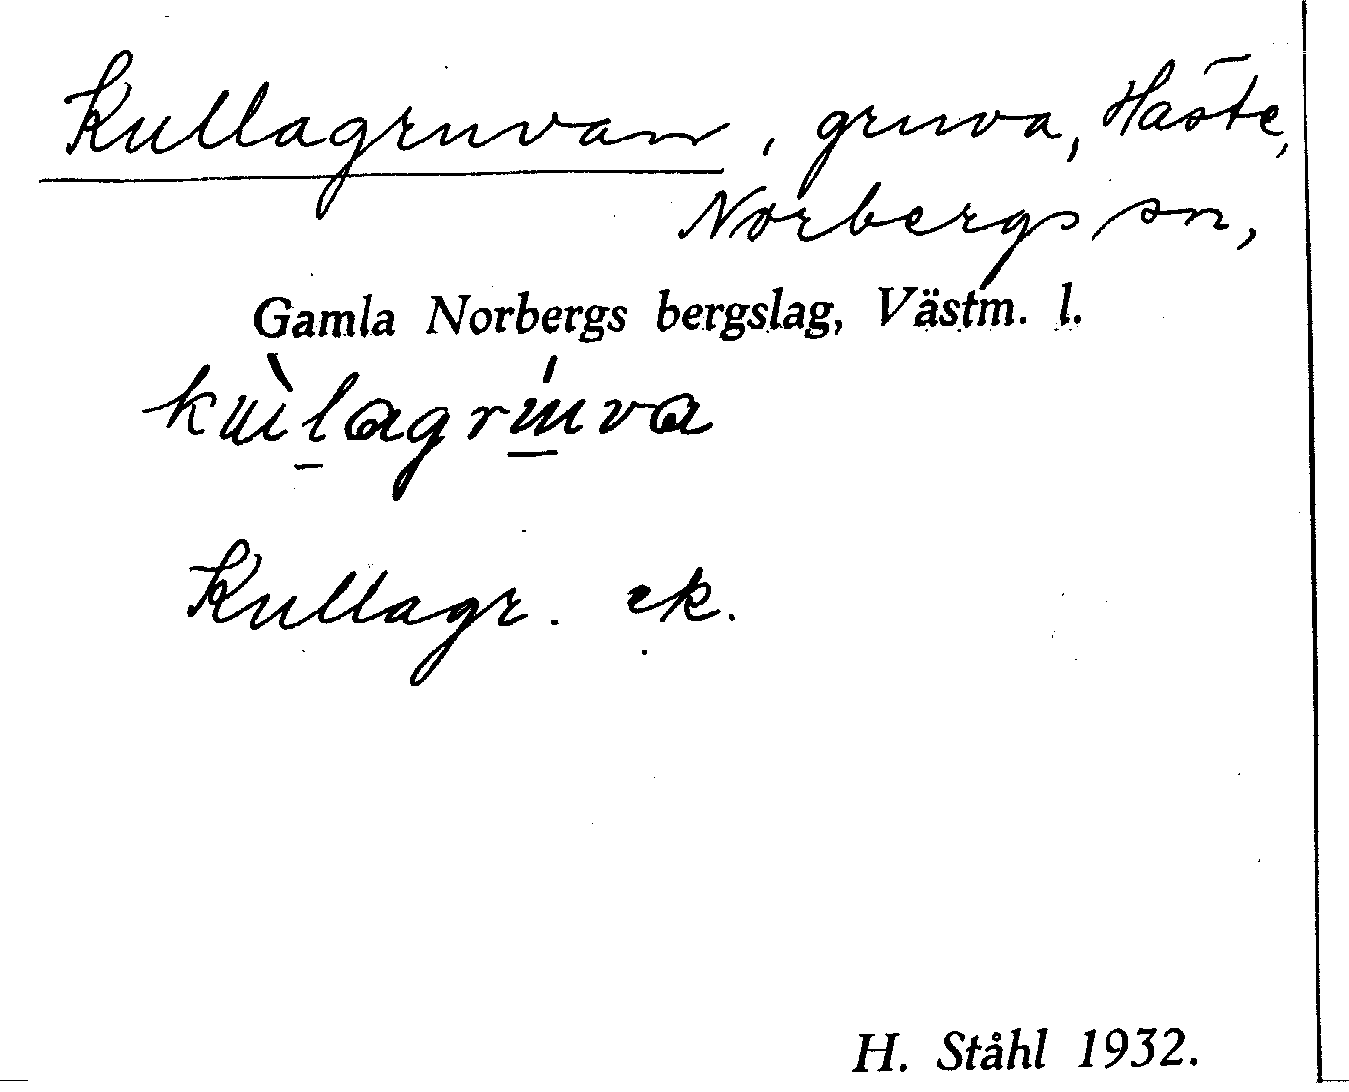 Kullagruvan, gruva, Häste,
Norbergs sn,
Gamla Norbergs bergslag, Västm. l.
Kullagr. ek.
H. Ståhl 1932.